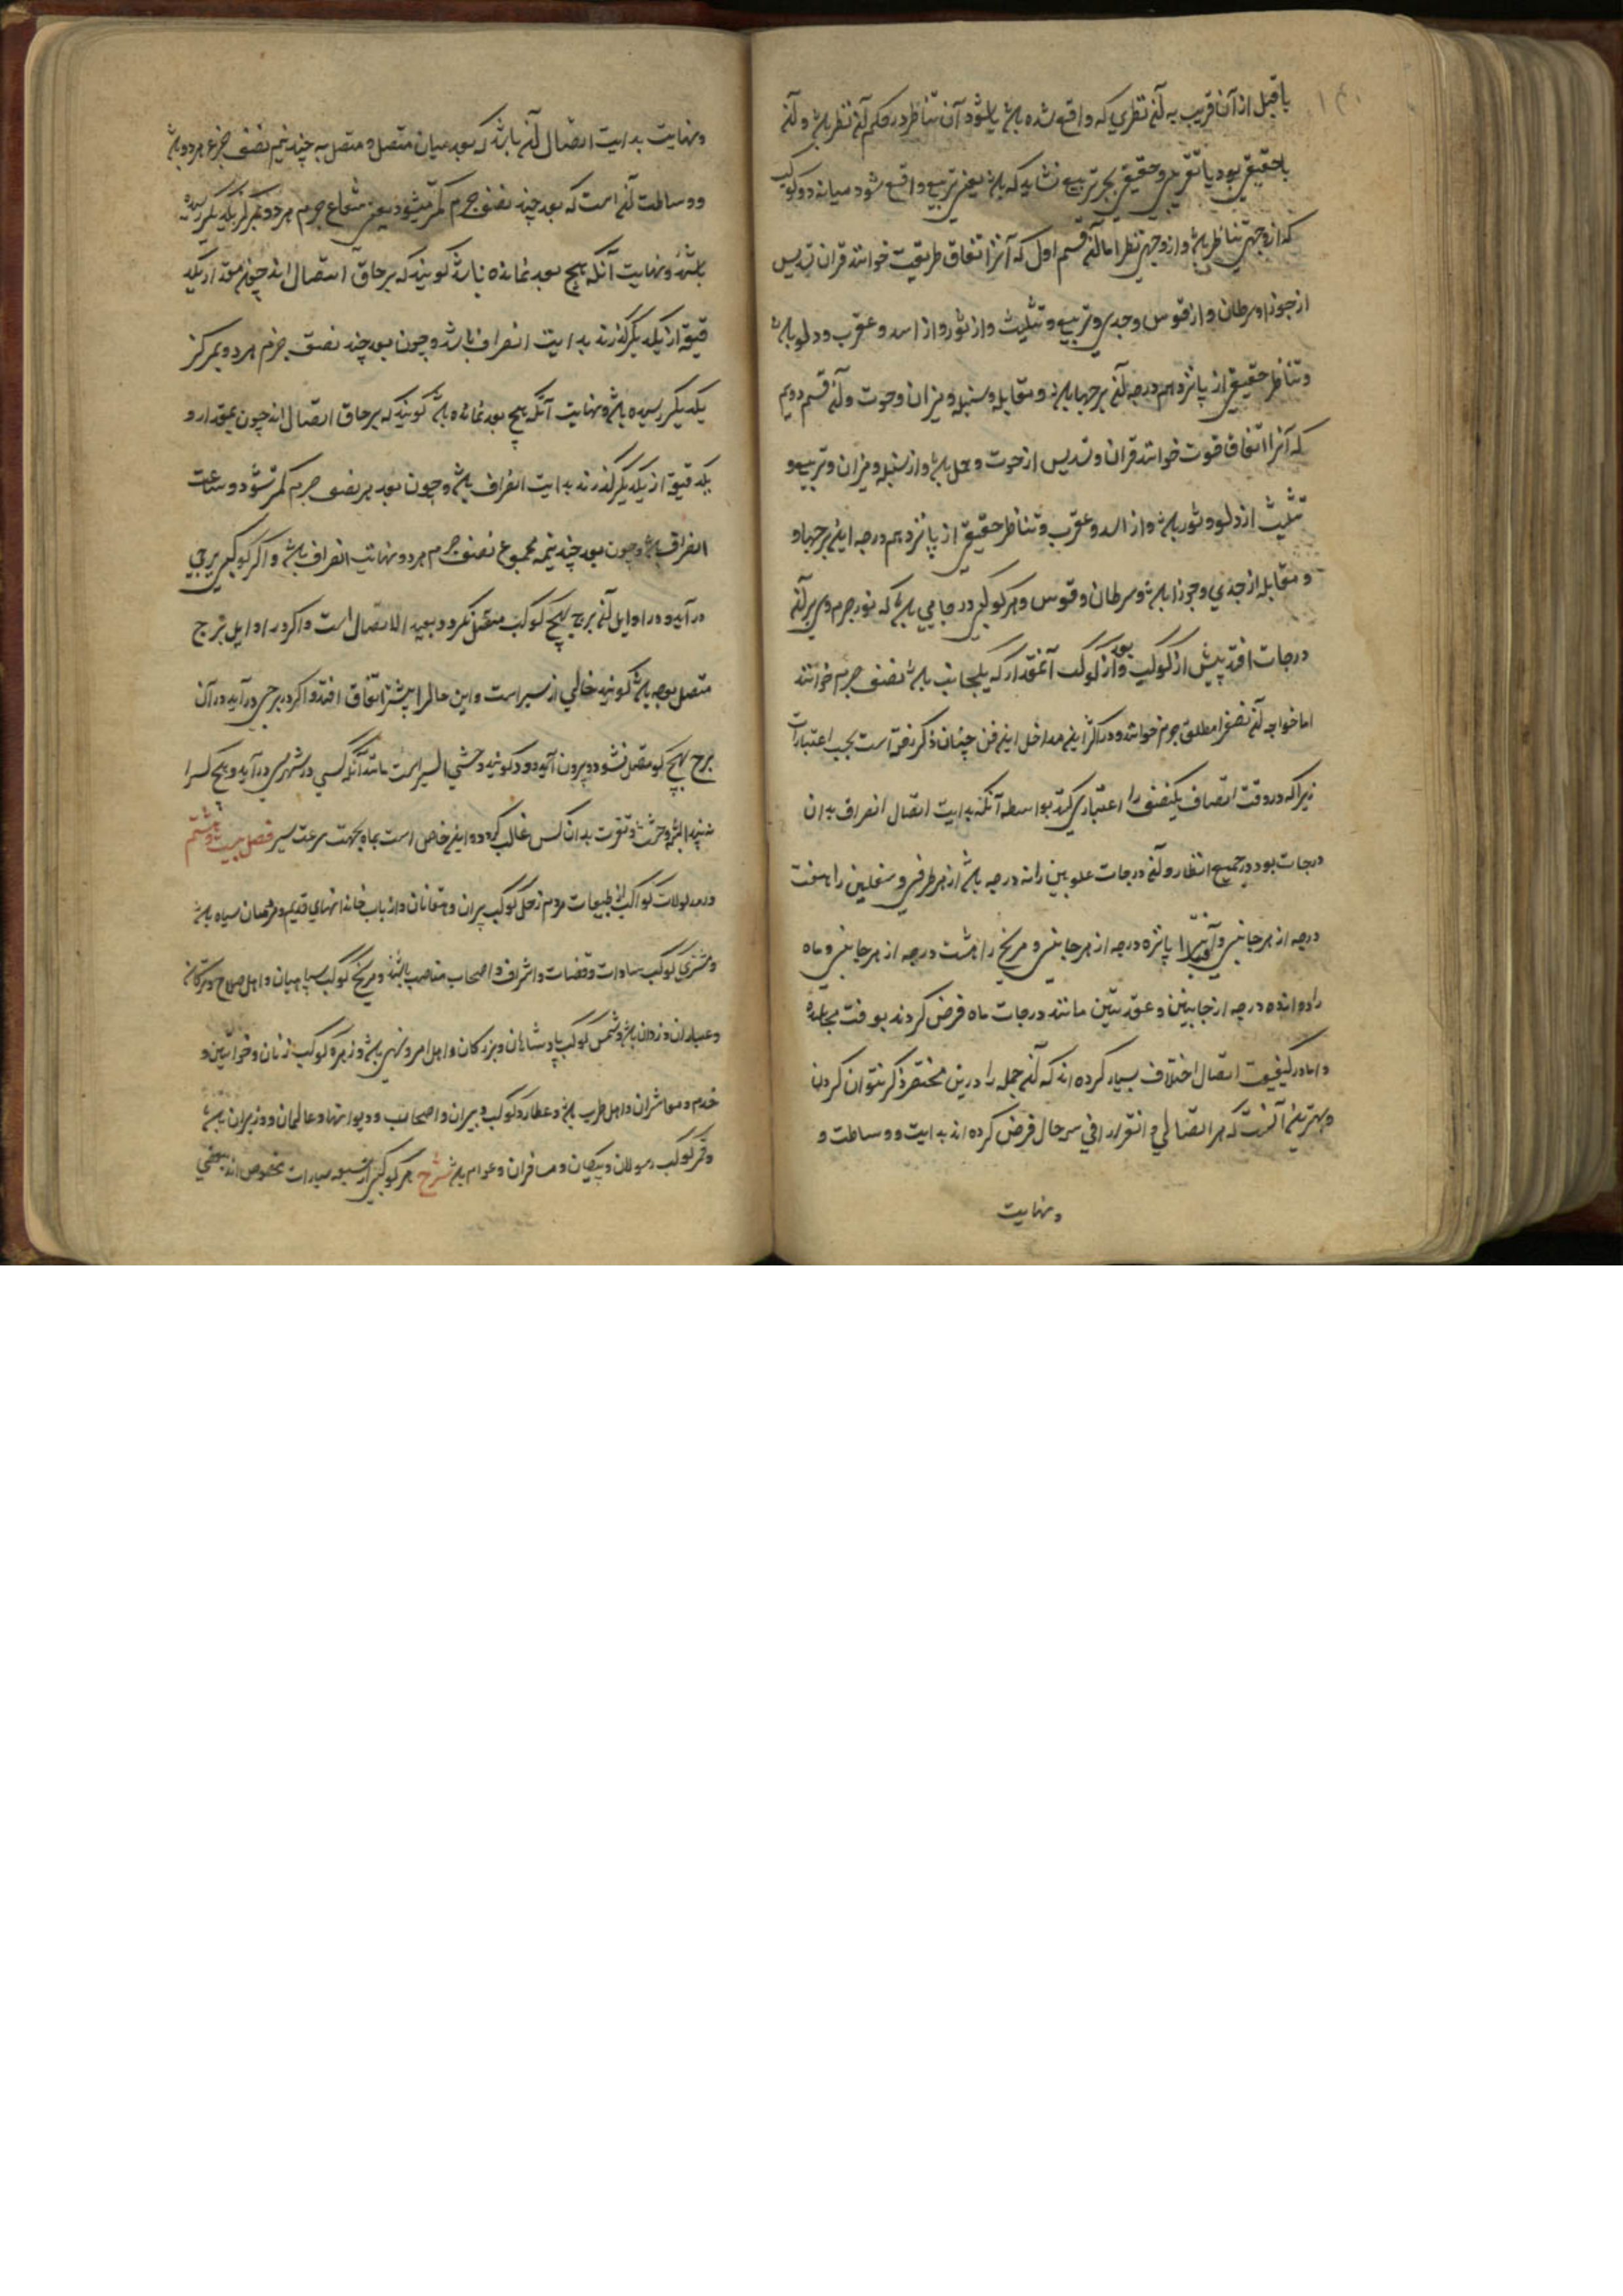 یا قبل از آن قریب به آن نظری که واقع شده باشد یا بشود آن تناظر در حکم آن نظر باشد و آن
یا حقیقی بود یا تقریبی و حقیقی بجز تربیع نشاید که باشد یعنی تربیع واقع شود میانه دو کوکب
که از وجهی تناظر باشد و از وجهی نظر اما آن قسم اول که آنرا اتفاق طریقت خوانند قران تسدیس
از جوزا و سرطان و از قوس و جدی و تربیع و تثلیث و از ثور و از اسد و عقرب و دلو باشد
و تناظر حقیقی از پانزدهم درجه آن برجها باشد و مقابله و سنبله و میزان و حوت و آن قسم دویم
که آنرا اتفاق قوت خوانند قران و تسدیس از حوت و حمل باشد و از سنبله و میزان و تربیع و
تثلیث از دلو و ثور باشد و از اسد و عقرب و تناظر حقیقی از پانزدهم درجه این برجها و
و مقابله از جدی و جوزا باشد و سرطان و قوس و هر کوکبی در جایی باشد که نور جرم وی بر آن
درجات افتد پیش از کوکب و از کوکب بود آنمقدار که یکجانب باشد نصف جرم خوانند
اما خواجه آن نصف را مطلق جرم خواند و در اکثر این مداخل این فن چنان ذکر رفته است بحسب اعتبارات
زیرا که در وقت اتصاف یکنصف را اعتبار می کنند بواسطه آنکه بدایت اتصال انصراف بدان
درجات بود در جمیع انظار و آن درجات علویین را نه درجه باشد از هر طرفی و سفلیین را هفت
درجه از هر جانبی و آفتاب را پانزده درجه از هر جانبی و مریخ را هشت درجه از هر جانبی و ماه
را دوازده درجه از جانبین و عقدتین مانند درجات ماه فرض کردند بوقت مجاسده
و اما در کیفیت اتصال اختلاف بسیار کرده اند که آن جمله را درین مختصر ذکر نتوان کردن
و بهترین آنست که هر اتصالی و انصرافی سه حال فرض کرده اند بدایت و وساطت و
و نهایت
و نهایت بدایت اتصال آن باشد که بعد میان متصل و متصل به چند نیم نصف جرم هر دو باشد
و وساطت آن است که بعد چند نصف جرم کمتر میشود یعنی شعاع جرم هر دو بمرکز یکدیگر رسیده
باشد و نهایت آنکه هیچ بعد نمانده باشد گویند که بر حاق اتصال اند چون مقدار یکد
قیقه از یکدیگر گذرند بدایت انصراف باشد و چون بعد چند نصف جرم هر دو بمرکز
یکدیگر رسیده باشد و نهایت آنکه هیچ بعد نمانده باشد گویند که بر حاق اتصال اند چون بمقدار و
یکدقیقه از یکدیگر گذرند بدایت انصراف باشد و چون بعد بر نصف جرم کمتر شود وساطت
انصراف باشد و چون بعد چند نیمه مجموع نصف جرم هر دو نهایت انصراف باشد و اگر کوکبی ببرجی
در آید و در اوایل آن برج بهیچ کوکب متصل نگردد بعید الاتصال است و اگر در اوایل برج
متصل بوجه باشد گویند خالی از سیر است و این حال را بیشتر اتفاق افتد و اگر در برجی در آید در آن
برج بهیچ کو متصل نشود و بیرون آید و در گویند وحشی السیر است مانند آنکه کسی در شهری در آید و هیچ کس را
نه بیند البته وحشت و نفرت بدان کس غالب گردد و این خاص است بماه بجهت سرعت سیر فصل بیست و هشتم
در مدلولات کواکب از طبیعات مردم زحل کوکب پیران و دهقانان و ارباب خاندانهای قدیم و غلامان سیاه باشد
و مشتری کوکب سادات و قضات و اشراف و اصحاب مناصب باشند و مریخ کوکب سپاهیان و اهل سلاح و ترکان
و عیاران و دزدان باشد و شمس کوکب پادشاهان و بزرگان و اهل امر و نهی باشد و زهره کوکب زنان و خواتین و
خدم و معاشران و اهل طرب باشد و عطارد کوکب دبیران و اصحاب و دیوانها و عالمان و وزیران باشد
و قمر کوکب رسولان و پیکان و مسافران و عوام باشد شرح هر کوکبی از سبعه سیارات مخصوص اند ببعضی